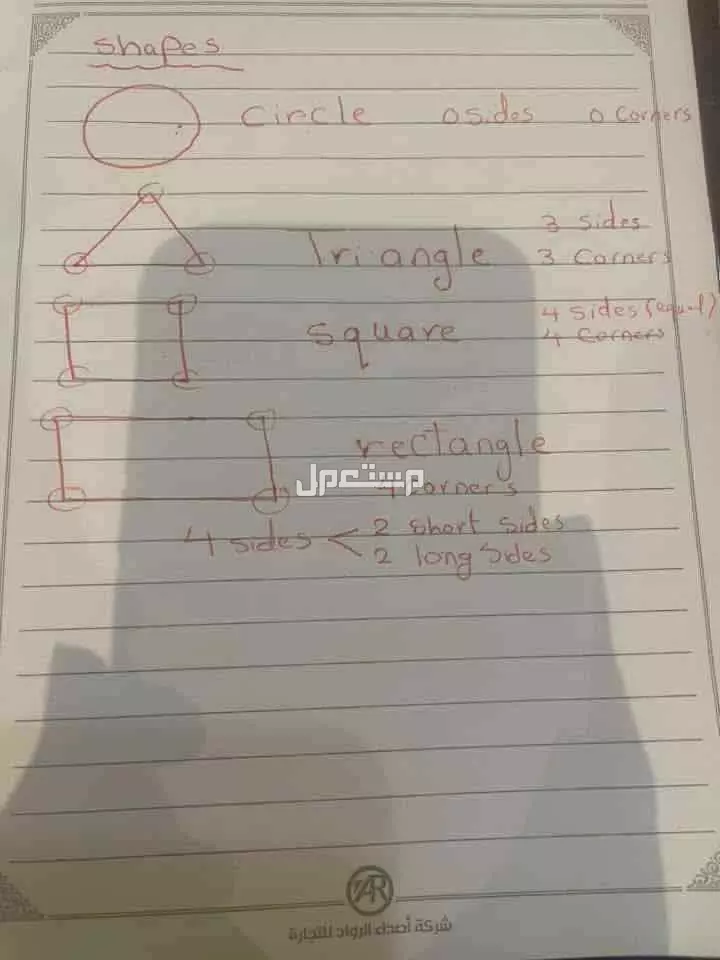 Shapes
Circle 0 sides 0 Corners
3 sides
Triangle 3 Corners
4 sides (equal)
square 4 Corners
rectangle
مستعمل
4 Corners
4 sides < 2 short sides
2 long sides
AR
شركة أصداء الرواد للتجارة